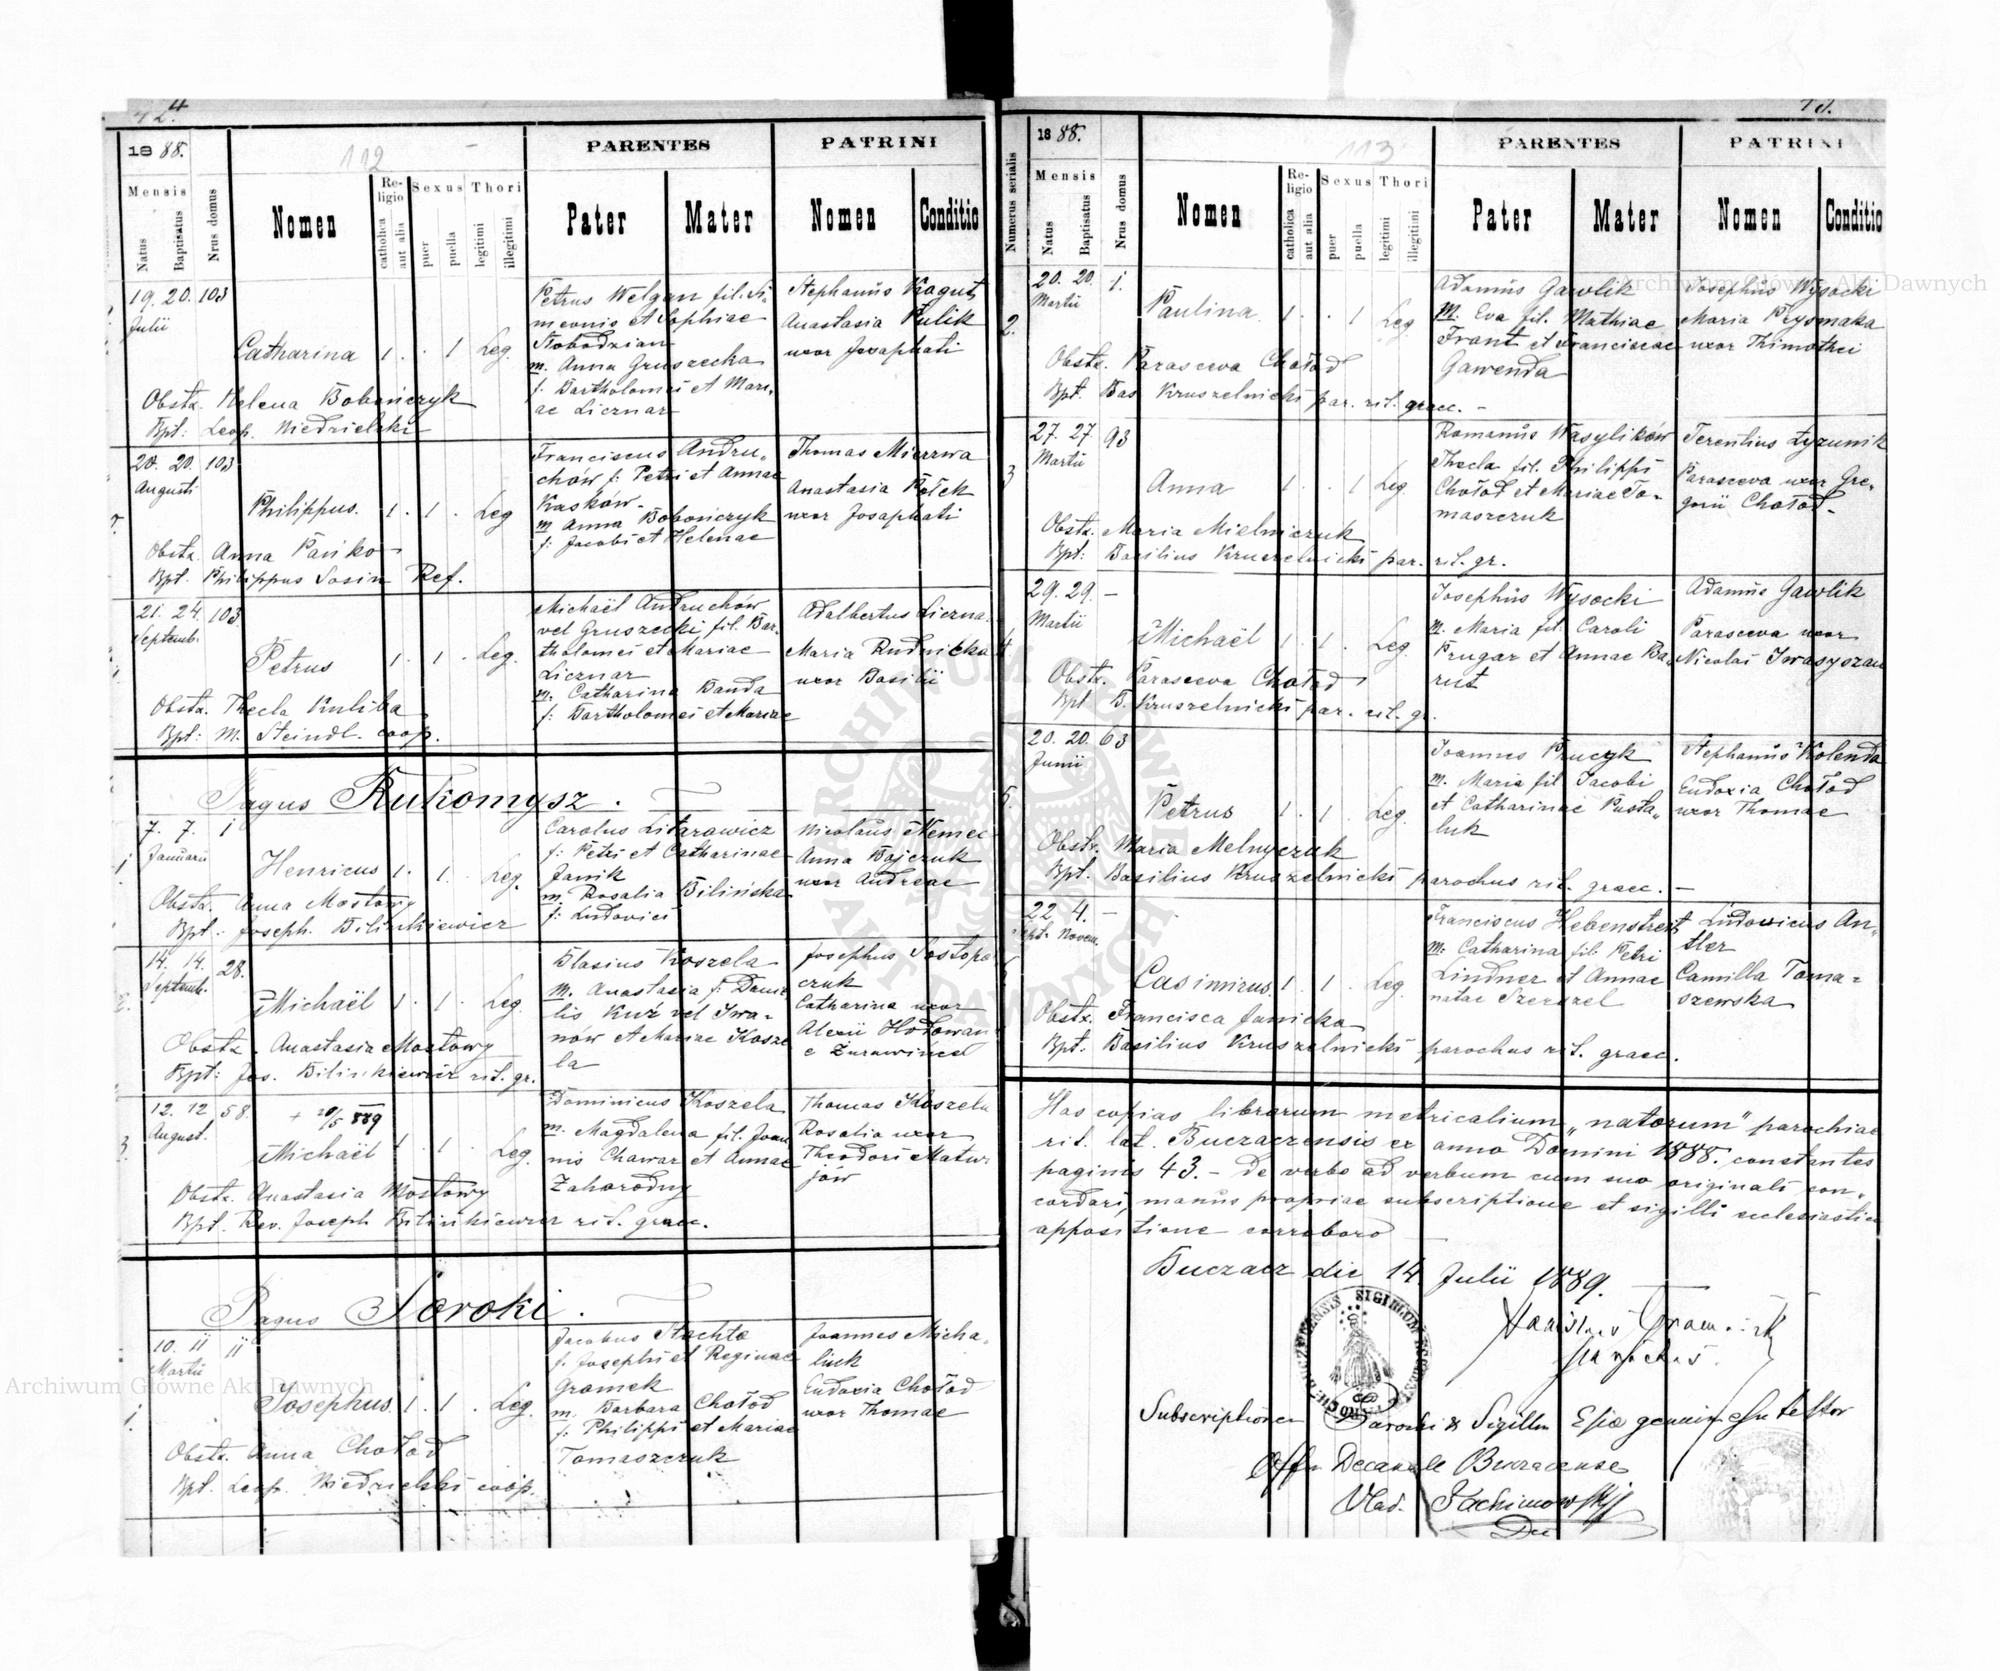 42.
4
1888.
112
PARENTES
PATRINI
Mensis
Religio
Sexus
Thori
Natus
Baptisatus
Nrus domus
Nomen
catholica
aut alia
puer
puella
legitimi
illegitimi
Pater
Mater
Nomen
Conditio
19. 20. 103
Julii
Catharina 1 . . 1 Leg.
Obstx. Helena Bobończyk
Bpt: Leop. Niedzielski
Petrus Welgan fil. Si-
meonis et Sophiae
Slobodzian
m. Anna Gruszecka
f. Bartholomei et Mari-
ae Licznar
Stephanus Kogut
Anastasia Kulik
uxor Josaphati
20. 20. 103
Augusti
Philippus. 1 . 1 . Leg
Obstx. Anna Pańko
Bpt. Philippus Sosin Ref.
Franciscus Andru-
chów f: Petri et Annae
Kasków
m Anna Bobończyk
f: Jacobi et Helenae
Thomas Mierzwa
Anastasia Kołek
uxor Josaphati
21. 24. 103
Septemb.
Petrus 1 . 1 . Leg.
Obstx. Thecla Kuliba
Bpt: M. Steindl. coop.
Michaël Andruchów
vel Gruszecki, fil. Bar-
tholomei et Mariae
Licznar
m. Catharina Banda
f: Bartholomei et Mariae
Adalbertus Liczna
Maria Rudnicka
uxor Basilii
Pagus Rukomysz.
7. 7. 1
Januarii
1
Henricus 1 . 1 . Leg.
Obstx. Anna Mostowy
Bpt: Joseph. Bilinkiewicz
Carolus Litarowicz
f: Petri et Catharinae
Janik
m. Rosalia Bilińska
f: Ludovici
Nicolaus Nemec
Anna Bojczuk
uxor Andreae
14. 14. 28.
Septemb.
2.
Michaël 1 . 1 . Leg.
Obstx. Anastasia Mostowy
Bpt: Jos. Bilinkiewicz rit. gr.
Blasius Koszela
m. Anastasia f: Dani-
lis Kuź vel Iwa-
nów et Mariae Kosze
la
Josephus Sostopa
czuk
Catharina uxor
Alexii Hołowan
e Żurawiniec
12. 12. 58.
August.
+ 20/5 889
3.
Michaël 1 . 1 . Leg.
Obstx. Anastasia Mostowy
Bpt. Rev. Joseph Bilinkiewicz rit. graec.
Dominicus Koszela
m. Magdalena fil. Joan
nis Chawar et Annae
Zahorodny
Thomas Koszela
Rosalia uxor
Theodori Matwi
jów
Pagus Soroki.
10. 11 11
Martii
1.
Josephus 1 . 1 . Leg.
Obstx. Anna Chołod
Bpt. Leop. Niedzielski coop.
Jacobus Stachta
f. Josephi et Reginae
Gramek
m. Barbara Chołod
f: Philippi et Mariae
Tomaszczuk
Joannes Micha-
luk
Eudoxia Chołod
uxor Thomae
1888.
113
PARENTES
PATRINI
Numerus serialis
Mensis
Religio
Sexus
Thori
Natus
Baptisatus
Nrus domus
Nomen
catholica
aut alia
puer
puella
legitimi
illegitimi
Pater
Mater
Nomen
Conditio
20. 20. 1.
Martii
2.
Paulina. 1 . . 1 Leg
Obstx. Parasceva Chołod
Bpt. Bas Kruszelnicki par. rit. graec. -
Adamus Gawlik
M. Eva fil. Mathiae
Frant et Franciscae
Gawenda
Josephus Wysocki
Maria Prysmaka
uxor Thimothei
27. 27. 93
Martii
3
Anna 1 . . 1 Leg
Obstx. Maria Mielniczuk
Bpt: Basilius Kruszelnicki par. rit. gr.
Romanus Wasylików
Thecla fil. Philippi
Chołod et Mariae To-
maszczuk
Terentius Łyzunik
Parasceva uxor Gre-
gorii Chołod.
29. 29. -
Martii
4
Michaël 1 . 1 . Leg.
Obstx. Parasceva Chołod
Bpt B. Kruszelnicki par. rit. gr.
Josephus Wysocki
m. Maria fil. Caroli
Prugar et Annae Ba-
rut
Adamus Gawlik
Parasceva uxor
Nicolai Iwasyszan
20. 20. 63
Junii
5.
Petrus 1 . 1 . Leg.
Obstr. Maria Melnyczuk
Bpt. Basilius Kruszelnicki parochus rit. graec. -
Joannes Pruczyk
m. Maria fil Jacobi
et Catharinae Pasta-
luk
Stephanus Kolenda
Eudoxia Chołod
uxor Thomae
22. 4. -
Sept. Novem.
Casimirus. 1 . 1 . Leg.
Obstx. Francisca Janicka
Bpt: Basilius Kruszelnicki parochus rit. graec.
Franciscus Hebenstreit
m. Catharina fil. Petri
Lindner et Annae
natae Szenzel
Ludovicus An-
tler
Camilla Toma-
szewska
Has copias librorum metricalium „natorum" parochiae
rit. lat. Buczaczensis ex anno Domini 1888. constantes
paginis 43. - de verbo ad verbum cum suo originali con-
cordari, manus propriae subscriptione et sigilli ecclesiastici
appositione corroboro
Buczacz die 14 Julii 1889.
parochus.
SIGILLUM
Subscriptionem Parochi & Sigillum Eccliae genuine esse testor
Offm Decanale Buczacense
Vlad. Jachimowski
Dec
Archiwum Główne Akt Dawnych
Archiwum Główne Akt Dawnych
ARCHIWUM GŁÓWNE AKT DAWNYCH